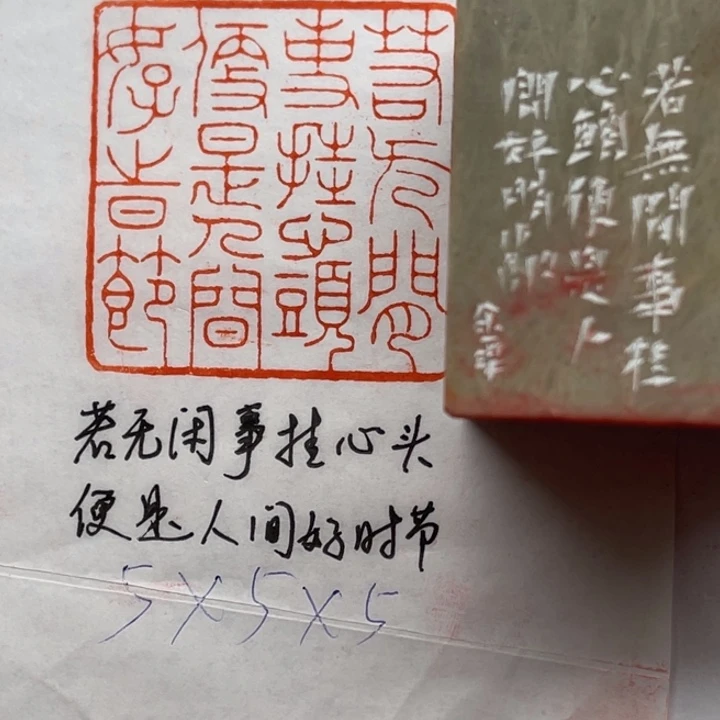 若无閒
事挂心頭
便是人間
好時節
若無閒事挂
心頭便是人
間好時節
若无闲事挂心头
便是人间好时节
5×5×5